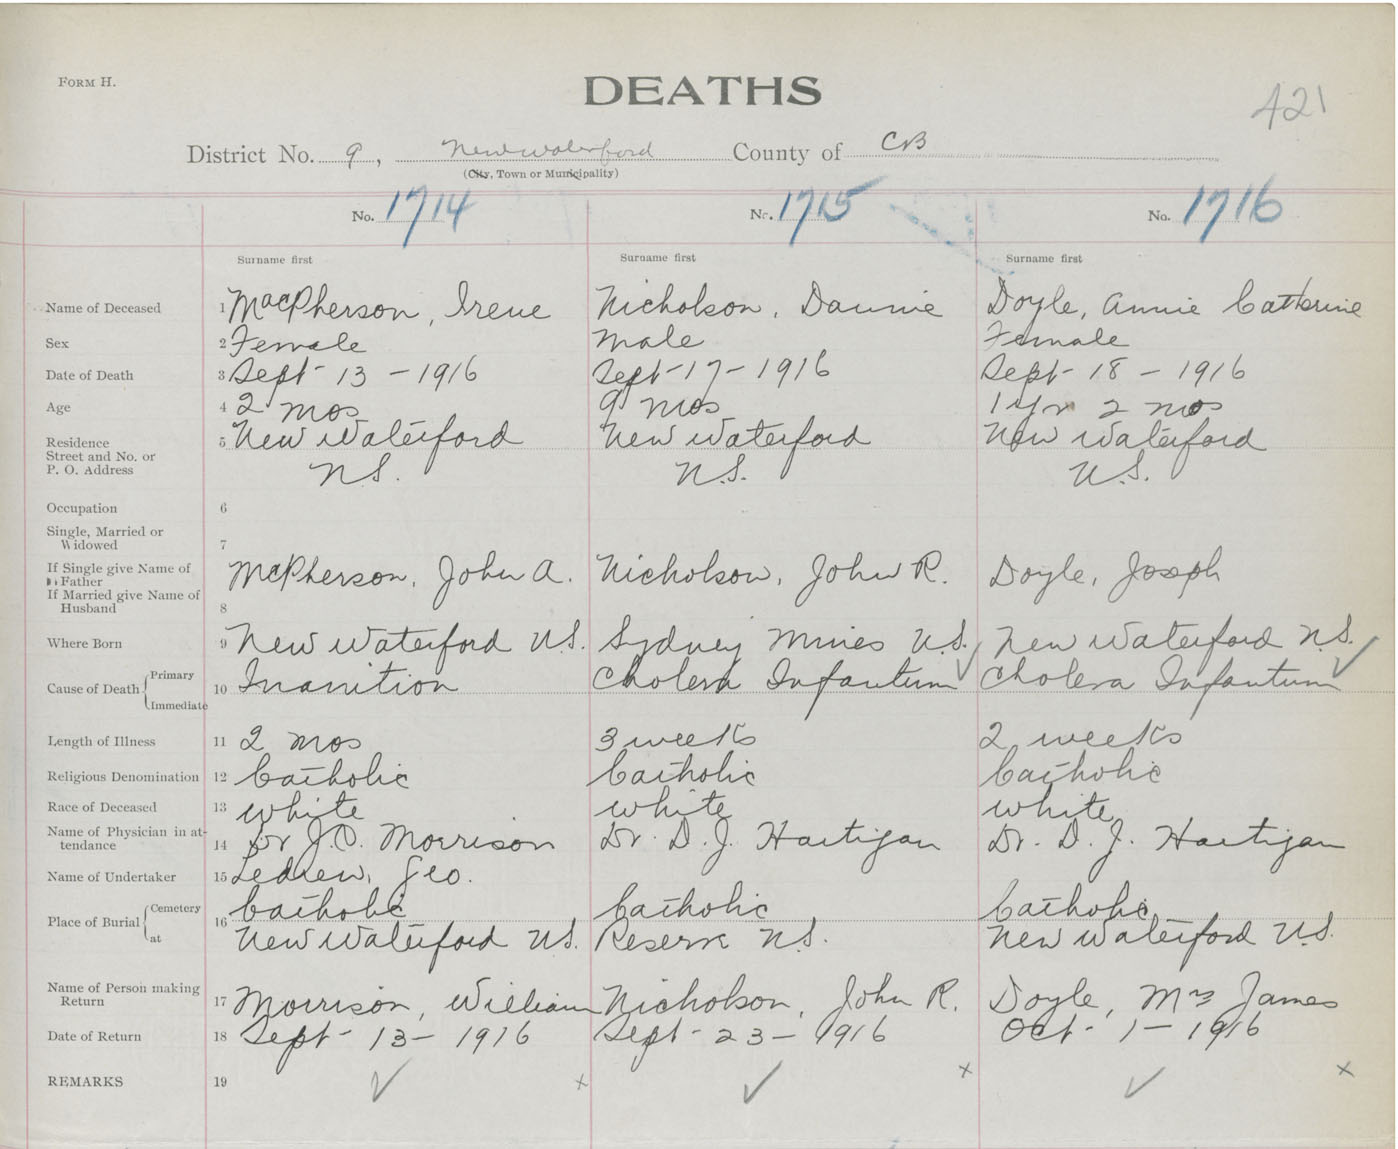 FORM H.
DEATHS
421
District No. 9, New Waterford County of CB
(City, Town or Municipality)
No. 1714 No. 1715 No. 1716
Surname first Surname first Surname first
Name of Deceased 1 MacPherson, Irene Nicholson, Dannie Doyle, Annie Catherine
Sex 2 Female Male Female
Date of Death 3 Sept - 13 - 1916 Sept - 17 - 1916 Sept - 18 - 1916
Age 4 2 mos 9 mos 1 yr 2 mos
Residence 5 New Waterford New Waterford New Waterford
Street and No. or
P. O. Address N.S. N.S. N.S.
Occupation 6
Single, Married or
Widowed 7
If Single give Name of
Father McPherson, John A. Nicholson, John R. Doyle, Joseph
If Married give Name of
Husband 8
Where Born 9 New Waterford N.S. Sydney Mines N.S. New Waterford N.S.
Primary
Cause of Death 10 Inanition Cholera Infantum Cholera Infantum
Immediate
Length of Illness 11 2 mos 3 weeks 2 weeks
Religious Denomination 12 Catholic Catholic Catholic
Race of Deceased 13 white white white
Name of Physician in at-
tendance 14 Dr J.C. Morrison Dr. D. J. Hartigan Dr. D. J. Hartigan
Name of Undertaker 15 Ledrew, Geo.
Cemetery Catholic Catholic Catholic
Place of Burial 16
at New Waterford N.S. Reserve N.S. New Waterford N.S.
Name of Person making
Return 17 Morrison, William Nicholson, John R. Doyle, Mrs James
Date of Return 18 Sept - 13 - 1916 Sept - 23 - 1916 Oct - 1 - 1916
REMARKS 19 ✓ x ✓ x ✓ x